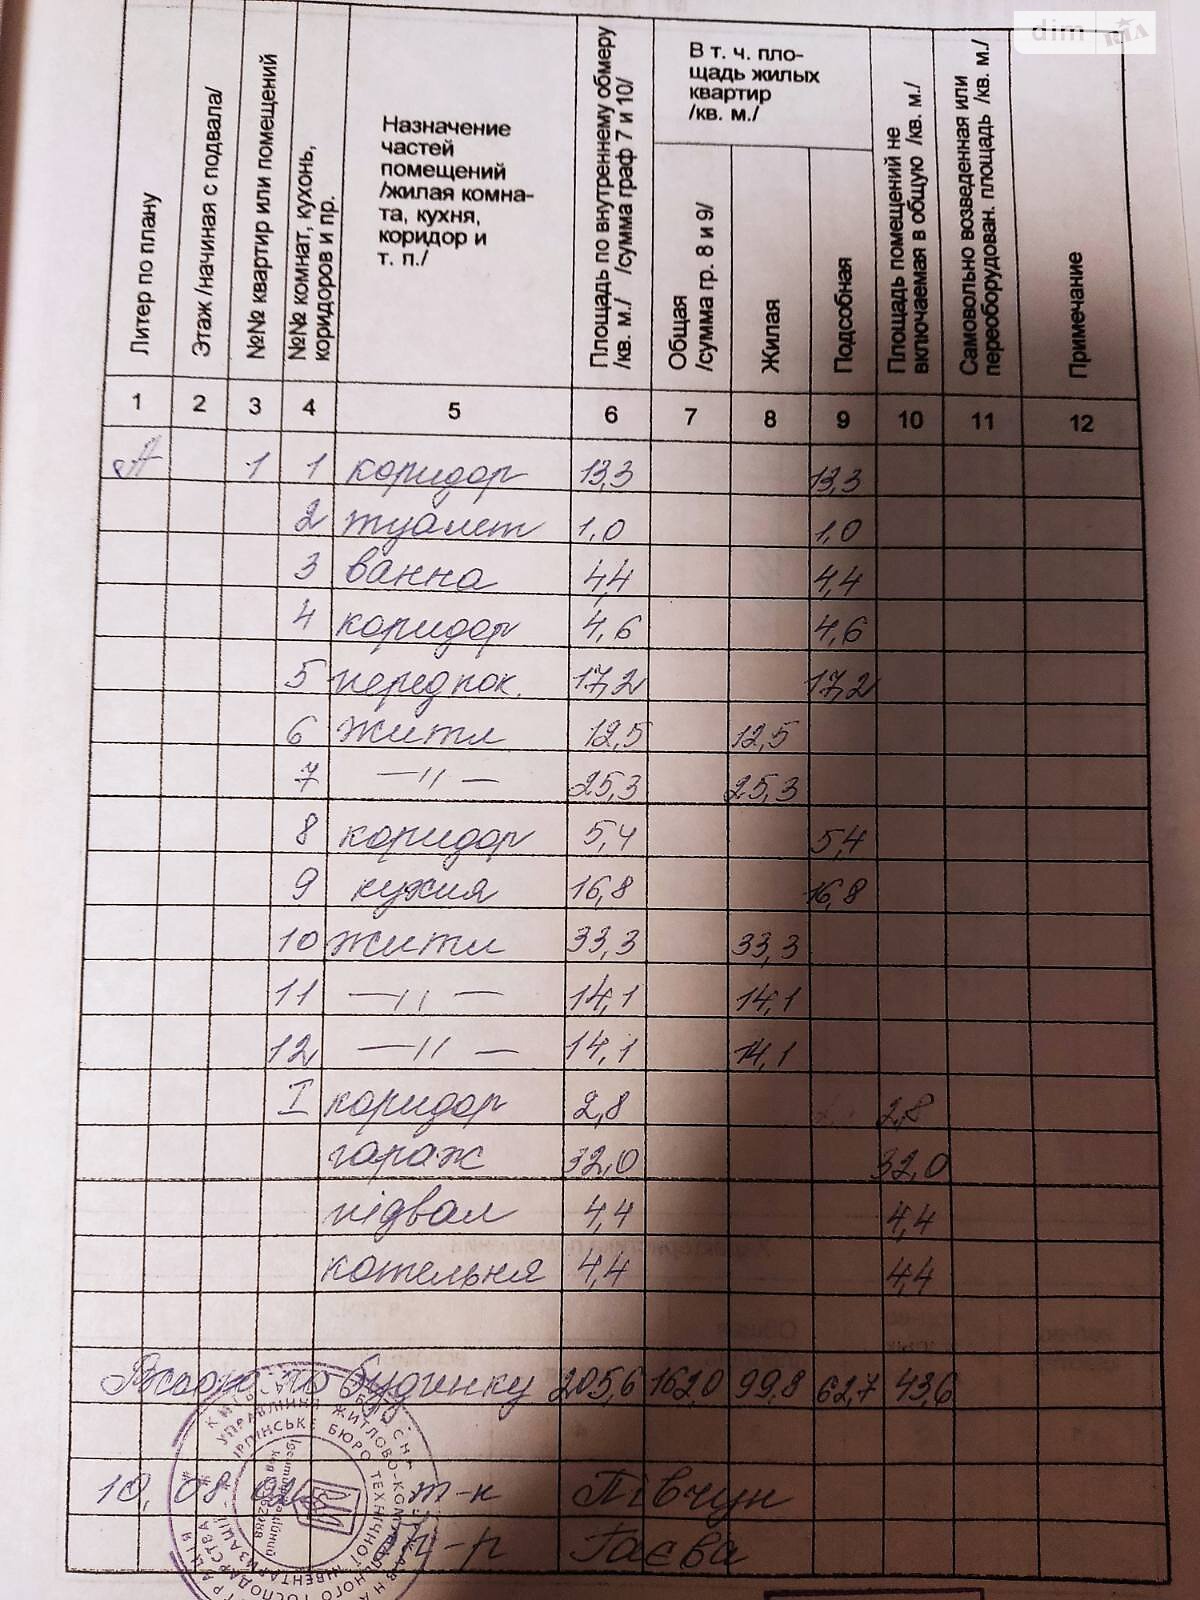 dim RIA
Литер по плану
Этаж /начиная с подвала/
№№ квартир или помещений
№№ комнат, кухонь, коридоров и пр.
Назначение
частей
помещений
/жилая комна-
та, кухня,
коридор и
т. п./
Площадь по внутреннему обмеру
/кв. м./ /сумма граф 7 и 10/
В т. ч. пло-
щадь жилых
квартир
/кв. м./
Общая
/сумма гр. 8 и 9/
Жилая
Подсобная
Площадь помещений не
включаемая в общую /кв. м./
Самовольно возведенная или
переоборудован. площадь /кв. м./
Примечание
1 2 3 4 5 6 7 8 9 10 11 12
А 1 1 коридор 13,3 13,3
2 туалет 1,0 1,0
3 ванна 4,4 4,4
4 коридор 4,6 4,6
5 передпок. 17,2 17,2
6 житл 12,5 12,5
7 —〃— 25,3 25,3
8 коридор 5,4 5,4
9 кухня 16,8 16,8
10 житл 33,3 33,3
11 —〃— 14,1 14,1
12 —〃— 14,1 14,1
I коридор 2,8 2,8
гараж 32,0 32,0
підвал 4,4 4,4
котельня 4,4 4,4
Всього по будинку 205,6 162,0 99,8 62,7 43,6
10. 08. т-к Півчун
Гаєва
УПРАВЛІННЯ ЖИТЛОВО-КОМУНАЛЬНОГО ГОСПОДАРСТВА
ІРПІНСЬКЕ БЮРО ТЕХНІЧНОЇ ІНВЕНТАРИЗАЦІЇ
Ідентифікаційний